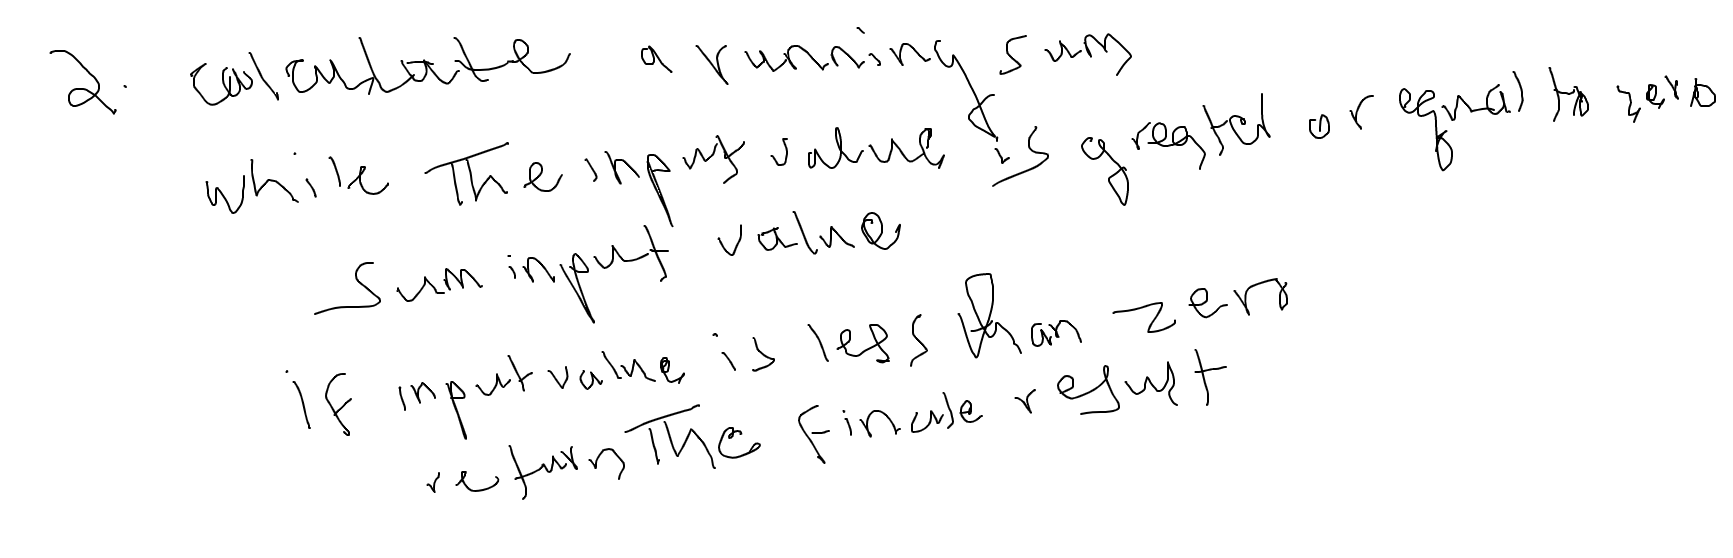 2. calculate a running sum
while The input value is greater or equal to zero
Sum input value
if input value is less than zero
return The finale result